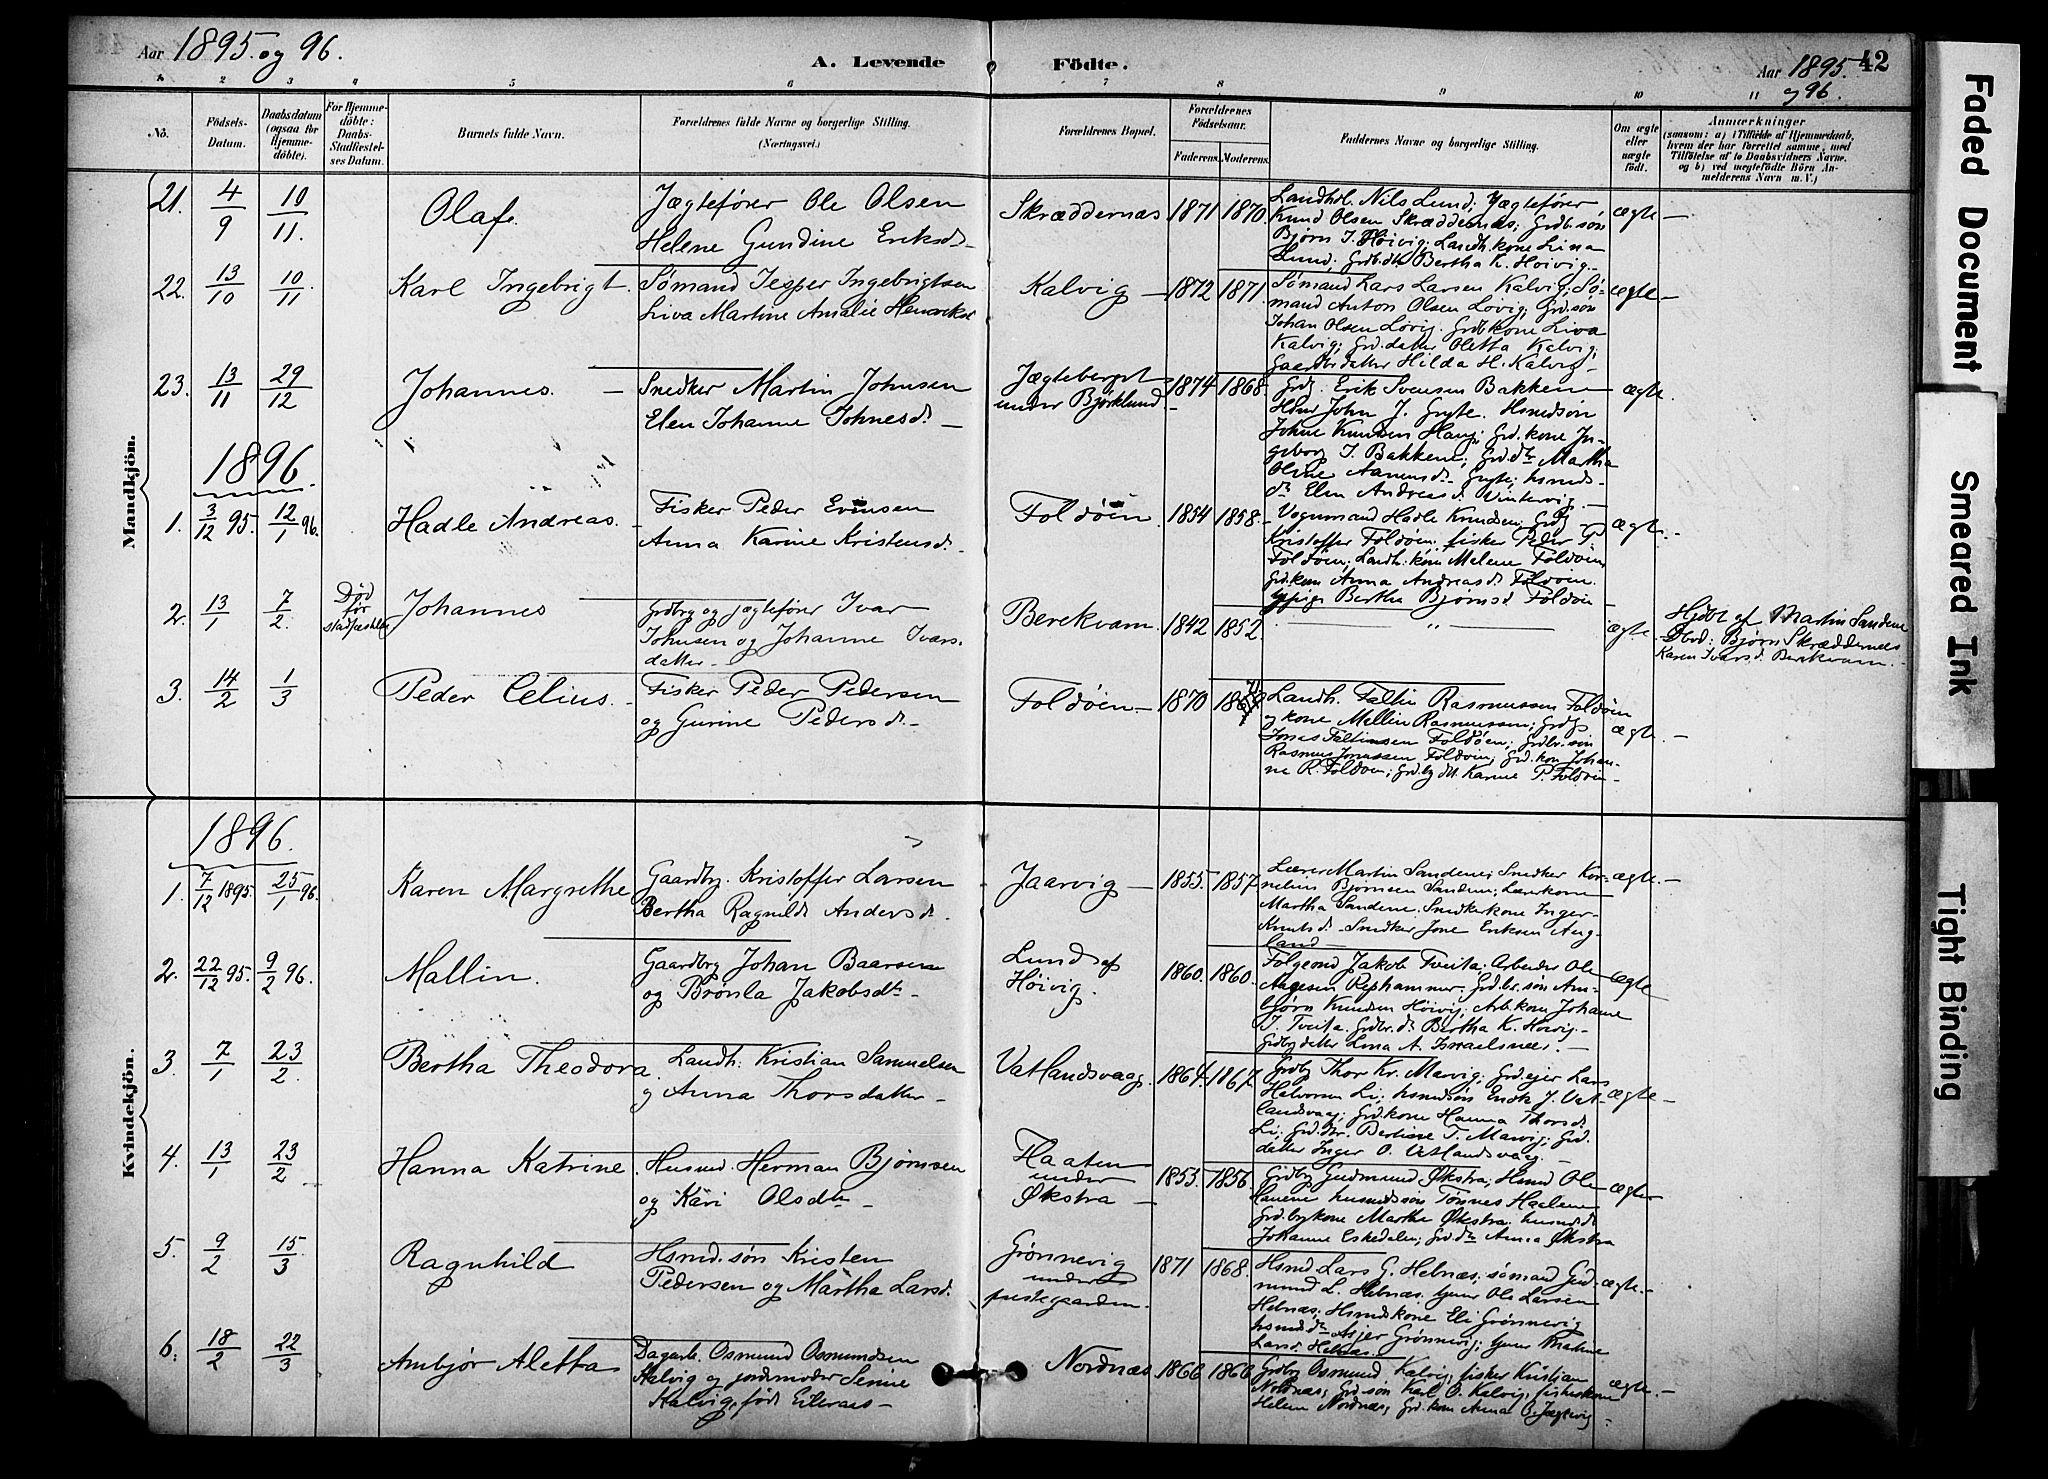 Aar 1895 og 96.
A. Levende Födte.
Aar 1895. og 96.
42
1 2 3 4 5 6 7 8 9 10 11
No.
Födsels-Datum.
Daabsdatum (ogsaa for Hjemme-döbte).
For Hjemme-döbte: Daabs-Stadfæstel-ses Datum.
Barnets fulde Navn.
Forældrenes fulde Navne og borgerlige Stilling. (Næringsvei.)
Forældrenes Bopæl.
Forældrenes Födselsaar.
Faderens. Moderens.
Faddernes Navne og borgerlige Stilling.
Om ægte eller uægte födt.
Anmærkninger
(saasom: a) i Tilfælde af Hjemmedaab,
hvem der har forrettet samme, med
Tilföielse af to Daabsvidners Navne,
og b) ved uægtefödte Börn An-
melderens Navn m. V.)
Mandkjön.
21. 4/9 10/11. Olaf. Jægtefører Ole Olsen
Helene Gundine Eriksd. Skræddernæs 1871 1870.
Landhdl. Nils Lund; Jægtefører
Knud Olsen Skræddernæs; Grdb.søn
Bjørn J. Høivig; Landh.kone Lina
Lund; Grdb.dtr Bertha K. Høivig.
ægte
22. 13/10 10/11. Karl Ingebrigt. Sømand Jesper Ingebrigtsen
Liva Martine Amalie Henriksd. Kalvig 1872 1871.
Sømand Lars Larsen Kalvig; Sø-
mand Anton Olsen Løvig; Grd.søn
Johan Olsen Løvig. Grdb.kone Liva
Kalvig; Grd.datter Oletta Kalvig;
Gaardbr.datter Hilda H. Kalvig
ægte
23. 13/11 29/12 Johannes. Snedker Martin Johnsen
Elen Johanne Johnesd. Jægteberget
under Bjørklund 1874 1868.
Grdb. Erik Svensen Bakken
John J. Gryte. Hsmdsøn
Johne Knudsen Haug; Grd.kone In-
geborg J. Bakken; Grd.dtr Martha
Gryte; husmds-
dtr Elen Andreasd. Vintervig
ægte.
1896
1. 3/12 95. 12/1 96. Hadle Andreas. Fisker Peder Evensen
Anna Karine Kristensd. Foldøen 1854 1858.
Vognmand Hadle Knudsen; Grdb.
Kristoffer Foldøen; fisker Peder P.
Foldøen; Landh.kone Melene Foldøen
Grd.kone Anna Andreasd. Foldøen
pige Bertha Bjørnsd. Foldøen
ægte.
2. 13/1 7/2. Død før stadfæstelse Johannes Grdbrg og jægtefører Ivar
Johnsen og Johanne Ivars-
datter Berekvam. 1842 1852. "
ægte. Hjdbt af Martin Sandene
Bjørn Skræddernæs
Karen Ivarsd. Berekvam.
3. 14/2 1/3 Peder Celius. Fisker Peder Pedersen
og Gurine Pedersd. Foldøen. 1870
Landh. Faltin Rasmussen Foldøen
og kone Mallin Rasmussen; Grdb.
Jonas Faltinsen Foldøen; Grdbr.søn
Rasmus Jonassen Foldøen; Grd.kone Johan-
ne R. Foldøen; Grdbg dtr Karine P. Foldøen
ægte.
Kvindekjön.
1896.
1. 7/12 1895. 25/1 96. Karen Margrethe Gaardbg. Kristoffer Larsen
Bertha Ragnild Andersd. Jaarvig 1855. 1857
Lærer Martin Sandene; Snedker Kor-
nelius Bjørnsen Sandene; Lærkone
Martha Sandene. Snedkerkone Inger
Knutsd. Snedker Jone Eriksen Aug-
land
ægte.
2. 22/12 95. 9/2 96. Mallin. Gaardbrg Johan Baarsen
og Brønla Jakobsdtr Lund af
Høivig. 1860. 1860.
Folgemd Jakob Tveita; Arbeider Ole
Aagesen Rephammer. Grdbr.søn Am-
bjørn Knudsen Høivig; Arb.kone Johanne
J. Tveita. Grdbr.d. Bertha K. Høivig.
Grdbg datter Lina A. Israelsnes.
ægte
3. 7/1 23/2. Bertha Theodora. Landh. Kristian Samuelsen
og Anna Thorsdatter Vatlandsvaag. 1864. 1867
Grdbg Thor Kr. Marvig; Grd.ejer Lars
Halvorsen Li; husmdsøn Endr. J. Vat-
landsvaag; Grd.kone Hanna Thorsd.
Li; Grd.dtr. Bertine T. Marvig; Grd.
datter Inger O. Vatlandsvaag
ægte
4. 13/1 23/2 Hanna Katrine. Husmd. Herman Bjørnsen
og Kari Olsdtr Flaaten
under
Økstra 1853. 1856.
Grdbg Gudmund Økstra; Hsmd Ole
husmdssøn Tønnes
Grd.brgkone Marthe Økstra. husmd.d.
Johanne Eskedalen; Grd.dtr Anna Økstra
ægte
5. 9/2 15/3 Ragnhild Hsmd.søn Kristen
Pedersen og Martha Larsd. Grønnevig
under
prestegaarden. 1871 1868.
Hsmd Lars G. Helnæs; sømand Gud-
mund L. Helnæs. Ole Larsen
Helnæs; Hsmdkone Eli Grønnevig
husmd.dtr Asjer Grønnevig;
Larsd. Helnæs.
ægte.
6. 18/2 22/3 Ambjør Aletta Dagarb. Osmund Osmundsen
Kalvig og jordemoder Serine
Kalvig, født Eileraas Nordnæs 1866 1860
Grdbg Osmund Kalvig; fisker Kristian
Nordnæs; Grd.søn Karl O. Kalvig; fiskerkone
Helene Nordnæs; Grd.kone Anna O. Jægtevig.
ægte.
Faded Document
Smeared Ink
Tight Binding